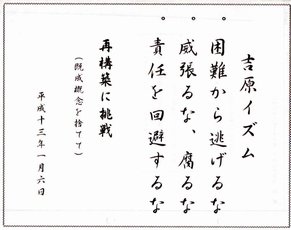 吉原イズム
。困難から逃げるな
。威張るな、腐るな
。責任を回避するな
再構築に挑戦
(既成概念を捨てて)
平成十三年一月六日